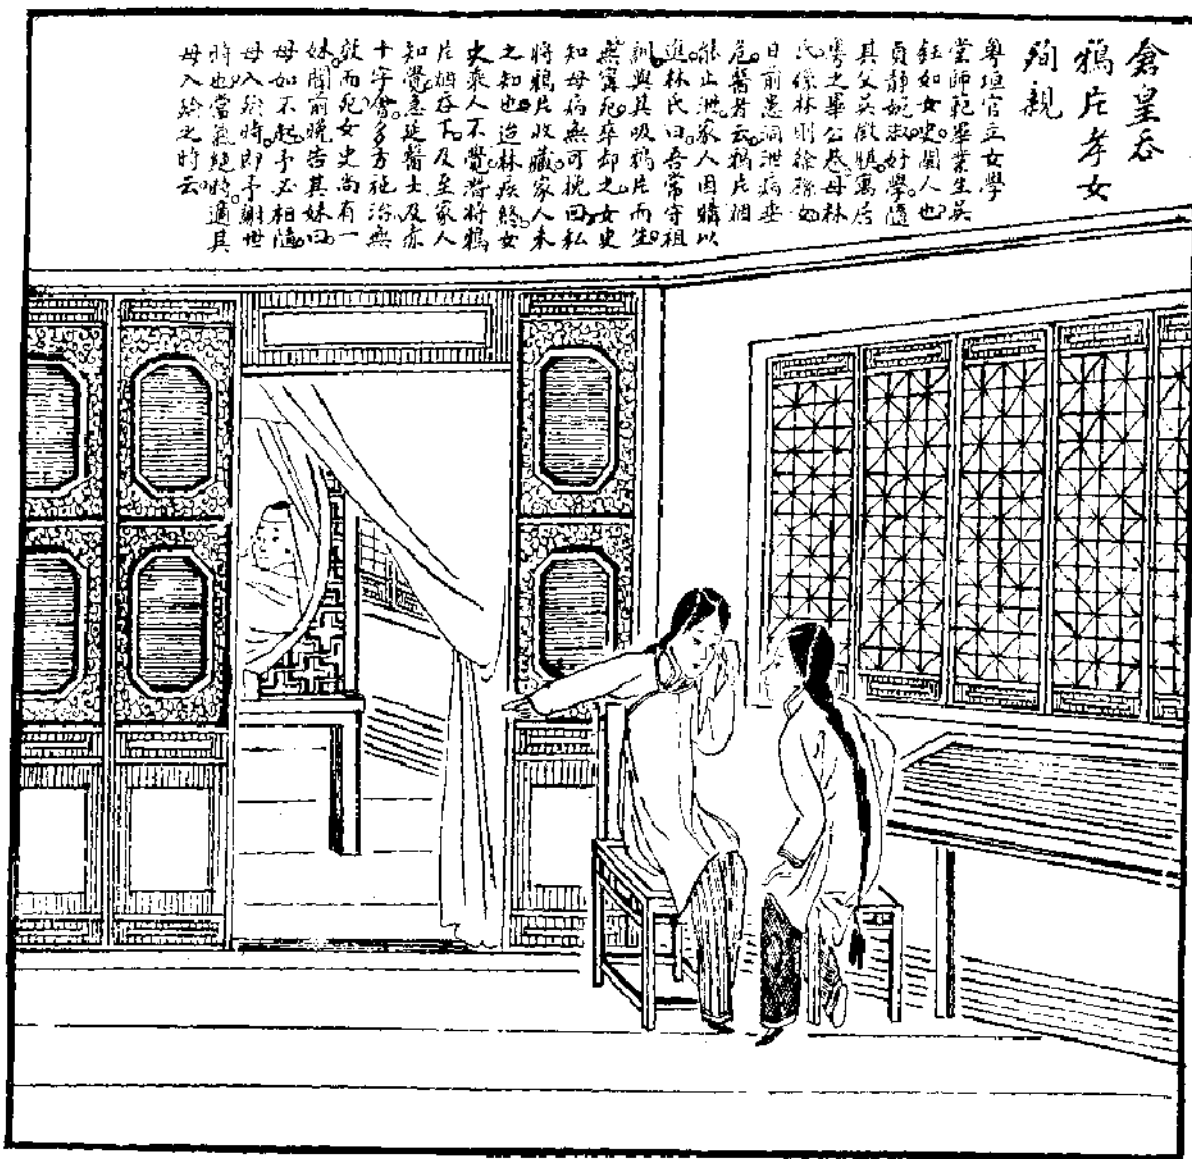 倉皇吞
鴉片孝女
殉親
粵垣官立女學
堂師範畢業生吳
鈺如女史。閩人也。
貞靜婉淑。好學。隨
其父吳徵驥。寓居
粵之畢公巷。母林
氏。係林則徐孫女。
日前患洞泄病垂
危。醫者云。鴉片烟
能止泄。家人因購以
進。林氏曰。吾常守祖
訓。與其吸鴉片而生。
無寧死。卒却之。女史
知母病無可挽回。私
將鴉片收藏。家人未
之知也。迨林疾終。女
史乘人不覺。潛將鴉
片烟吞下。及至家人
知覺。急延醫士及赤
十字會。多方施治無
效而死。女史尚有一
妹。聞前晚告其妹曰。
母如不起。予必相隨。
母入殮時。即予謝世
時也。當氣絕時。適其
母入殮之時云